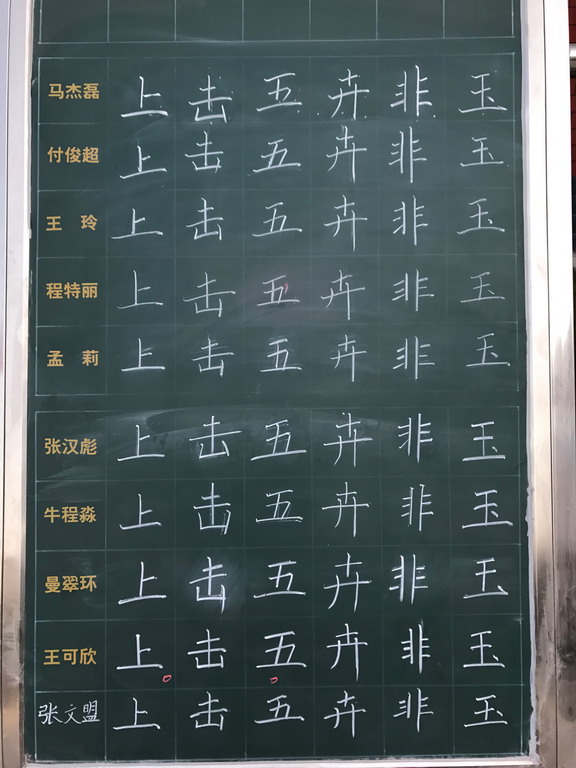 马杰磊 上 击 五 卉 非 玉
付俊超 上 击 五 卉 非 玉
王 玲 上 击 五 卉 非 玉
程特丽 上 击 五 卉 非 玉
孟 莉 上 击 五 卉 非 玉
张汉彪 上 击 五 卉 非 玉
牛程淼 上 击 五 卉 非 玉
曼翠环 上 击 五 卉 非 玉
王可欣 上 击 五 卉 非 玉
张文盟 上 击 五 卉 非 玉